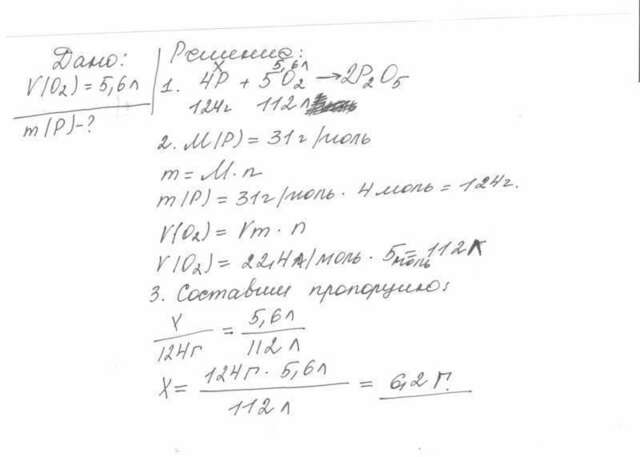 Дано:
V(O₂) = 5,6 л
m(P) - ?
Решение:
x 5,6 л
1. 4P + 5O₂ → 2P₂O₅
124г 112 л
2. M(P) = 31 г/моль
m = M · n
m(P) = 31 г/моль · 4 моль = 124 г.
V(O₂) = Vm · n
V(O₂) = 22,4 л/моль · 5 моль = 112 л
3. Составим пропорцию:
x/124г = 5,6 л/112 л
X = 124 г · 5,6 л/112 л = 6,2 г.